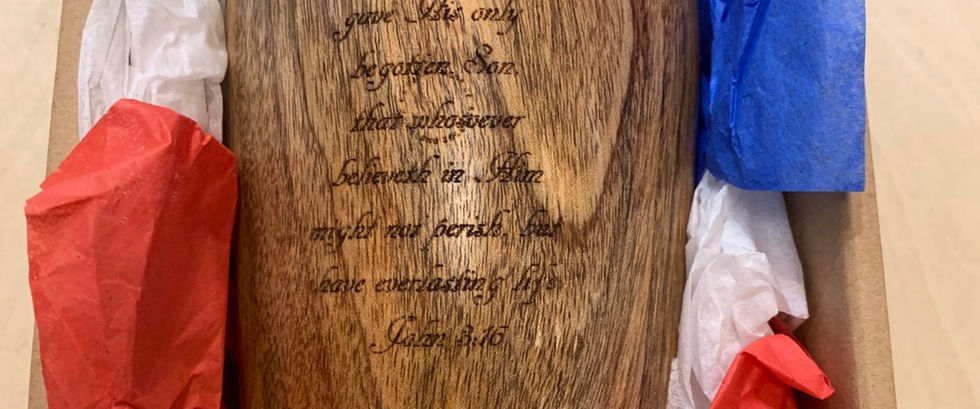 gave His only
begotten Son,
that whosoever
believeth in Him
might not perish, but
have everlasting life.
John 3:16